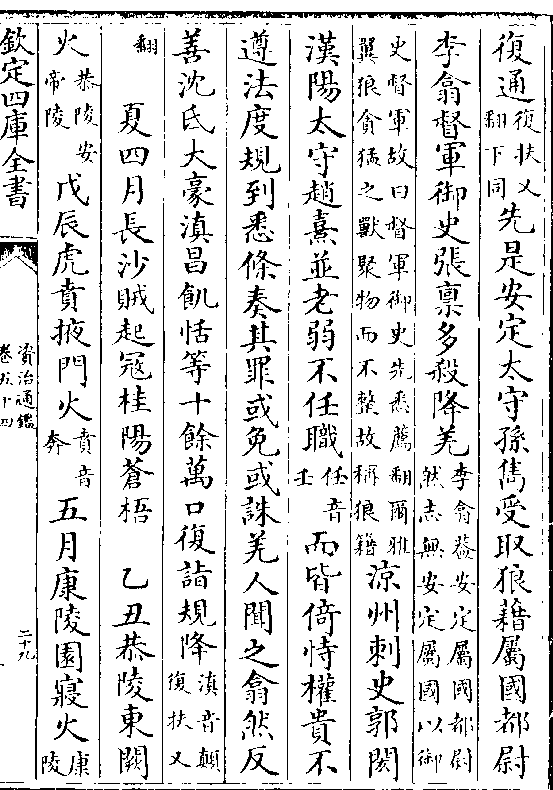 復通復扶又翻下同先是安定太守孫儁受取狼藉屬國都尉
李翕督軍御史張稟多殺降羌李翕葢安定屬國都尉然志無安定屬國以御
史督軍故曰督軍御史先悉薦翻爾雅翼狼貪猛之獸聚物而不整故稱狼籍涼州刺史郭閎
漢陽太守趙熹並老弱不任職任音壬而皆倚恃權貴不
遵法度規到悉條奏其罪或免或誅羌人聞之翕然反
善沈氏大豪滇昌飢恬等十餘萬口復詣規降滇音顛復扶又
翻 夏四月長沙賊起冦桂陽蒼梧 乙丑恭陵東闕
火恭陵安帝陵戊辰虎賁掖門火賁音奔五月康陵園寢火康陵
欽定四庫全書
資治通鑑
卷五十四
二十九